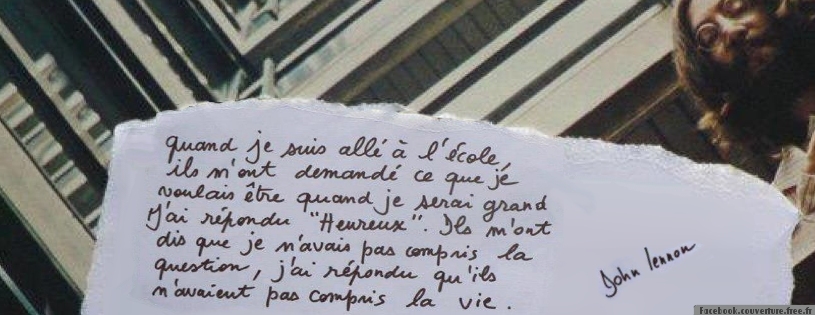 quand je suis allé à l'école,
ils m'ont demandé ce que je
voulais être quand je serai grand
J'ai répondu "Heureux". Ils m'ont
dis que je n'avais pas compris la
question, j'ai répondu qu'ils
n'avaient pas compris la vie.
John lennon
Facebook.couverture.free.fr